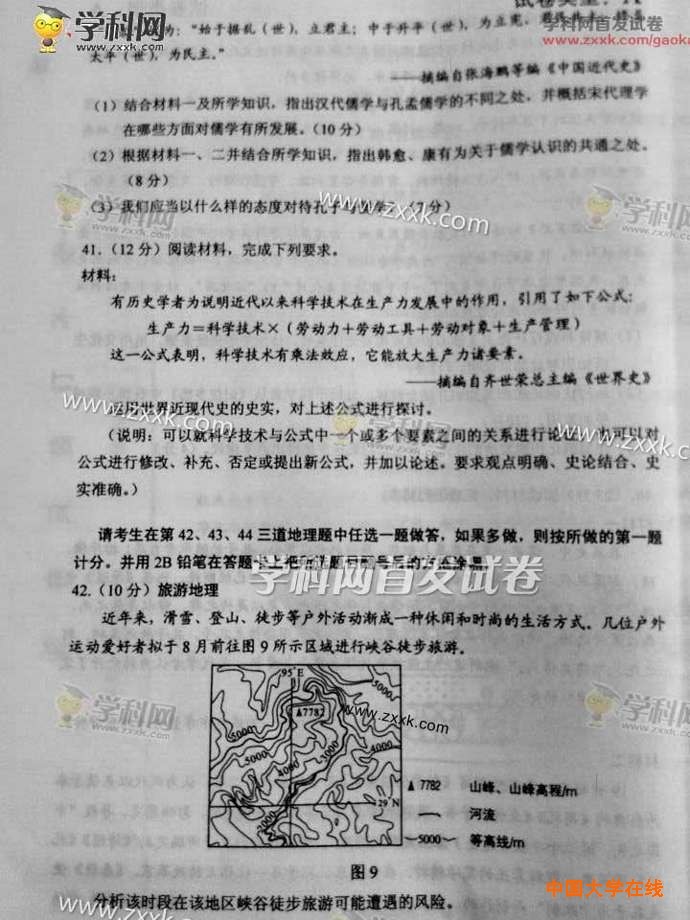 学科网
zxxk.com
学科网首发试卷
www.zxxk.com/gaoka
为:“始于据乱(世),立君主;中于升平(世),为立宪,君民共主;终至
太平(世),为民主。”
——摘编自张海鹏等编《中国近代史》
(1)结合材料一及所学知识,指出汉代儒学与孔孟儒学的不同之处,并概括宋代理学
在哪些方面对儒学有所发展。(10分)
(2)根据材料一、二并结合所学知识,指出韩愈、康有为关于儒学认识的共通之处。
(8分)
(3)我们应当以什么样的态度对待孔子与儒学?(7分)
www.zxxk.com
41.(12分)阅读材料,完成下列要求。
材料:
有历史学者为说明近代以来科学技术在生产力发展中的作用,引用了如下公式:
生产力=科学技术×(劳动力+劳动工具+劳动对象+生产管理)
这一公式表明,科学技术有乘法效应,它能放大生产力诸要素。
——摘编自齐世荣总主编《世界史》
运用世界近现代史的史实,对上述公式进行探讨。
(说明:可以就科学技术与公式中一个或多个要素之间的关系进行论证,也可以对
公式进行修改、补充、否定或提出新公式,并加以论述。要求观点明确、史论结合、史
实准确。)
请考生在第42、43、44三道地理题中任选一题做答,如果多做,则按所做的第一题
计分。并用2B铅笔在答题卡上把所选题目题号后的方框涂黑。
学科网首发试卷
42.(10分)旅游地理
近年来,滑雪、登山、徒步等户外活动渐成一种休闲和时尚的生活方式。几位户外
运动爱好者拟于8月前往图9所示区域进行峡谷徒步旅游。
95°E
5000
▲7782
5000
4000
3000
4000
5000
29°N
2000
▲ 7782 山峰、山峰高程/m
河流
5000 等高线/m
图9
分析该时段在该地区峡谷徒步旅游可能遭遇的风险。
中国大学在线